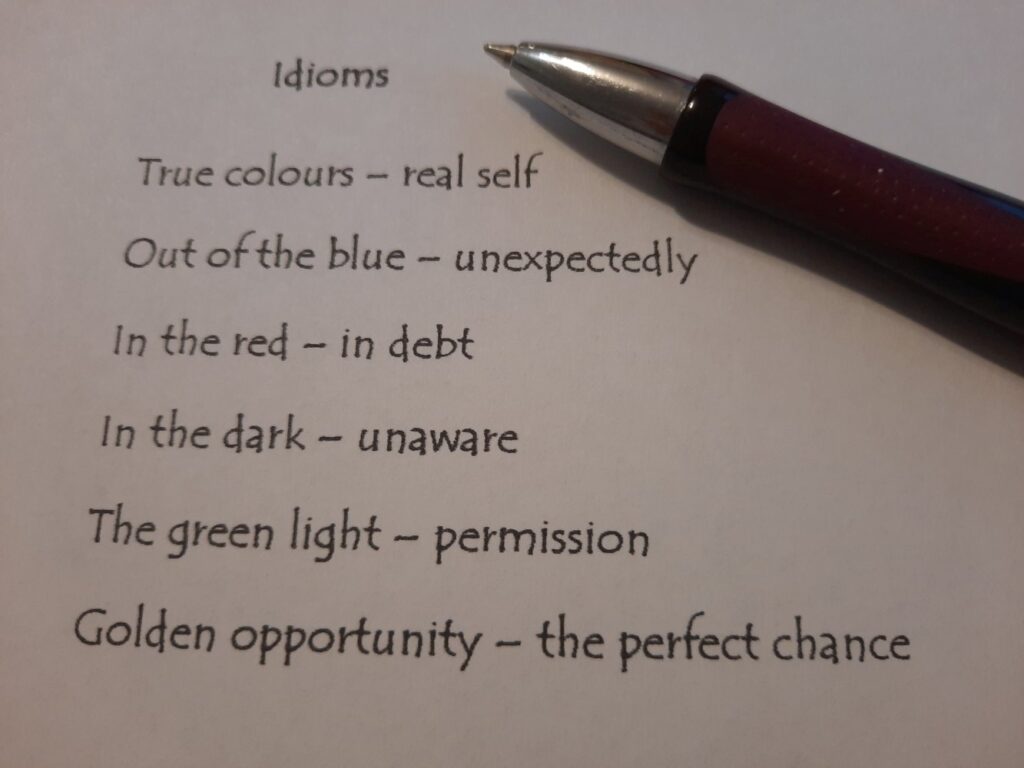 Idioms
True colours – real self
Out of the blue – unexpectedly
In the red – in debt
In the dark – unaware
The green light – permission
Golden opportunity – the perfect chance